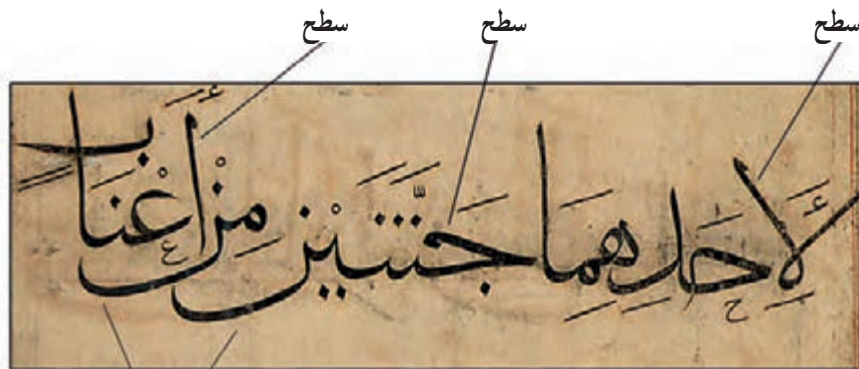 سطح سطح سطح
لِأَحَدِهِمَا جَنَّتَيْنِ مِنْ أَعْنَابٍ